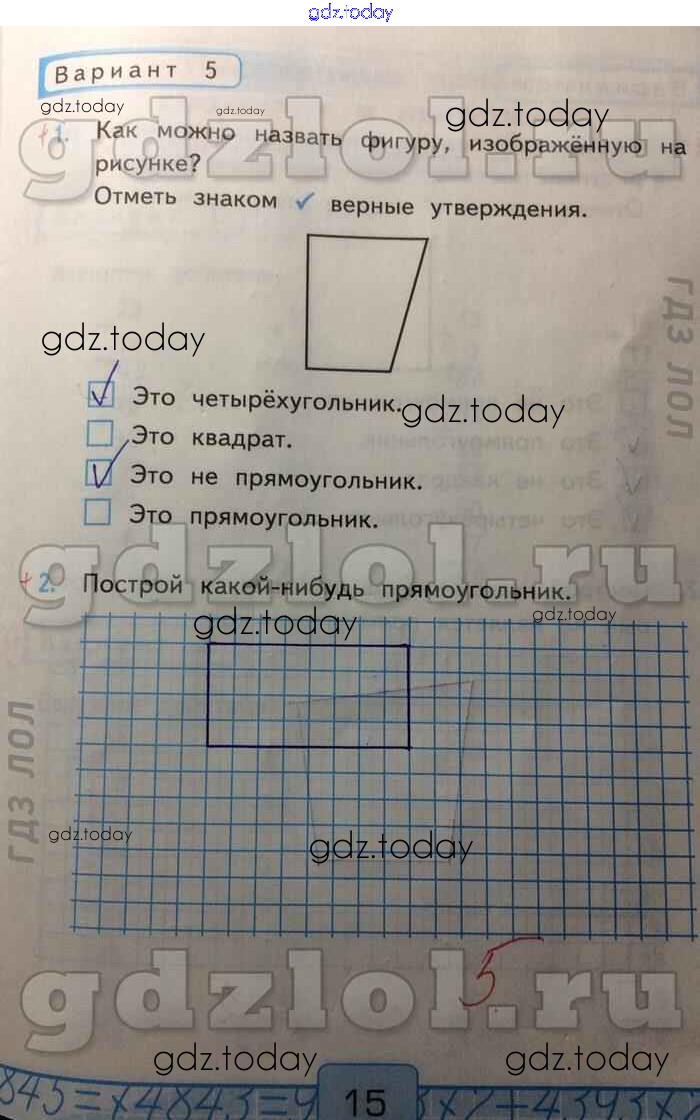 gdz.today
Вариант 5
gdz.today
gdz.today
gdz.today
gdzlol.ru
1. Как можно назвать фигуру, изображённую на
рисунке?
Отметь знаком ✓ верные утверждения.
ГДЗ ЛОЛ
gdz.today
✓ Это четырёхугольник.
gdz.today
Это квадрат.
✓ Это не прямоугольник.
Это прямоугольник.
gdzlol.ru
+ 2. Построй какой-нибудь прямоугольник.
gdz.today
gdz.today
ГДЗ ЛОЛ
gdz.today
gdz.today
5
gdzlol.ru
gdz.today
gdz.today
15